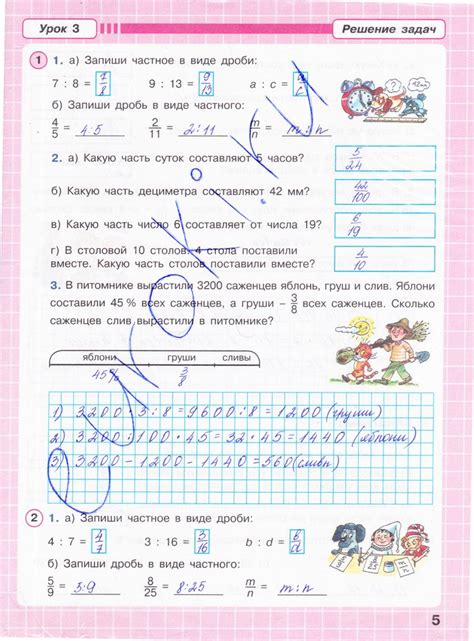 Урок 3 Решение задач
1 1. а) Запиши частное в виде дроби:
7 : 8 = 7/8 9 : 13 = 9/13 a : c = a/c
б) Запиши дробь в виде частного:
4/5 = 4:5 2/11 = 2:11 m/n = m:n
2. а) Какую часть суток составляют 5 часов? 5/24
б) Какую часть дециметра составляют 42 мм? 42/100
в) Какую часть число 6 составляет от числа 19? 6/19
г) В столовой 10 столов. 4 стола поставили
вместе. Какую часть столов поставили вместе? 4/10
3. В питомнике вырастили 3200 саженцев яблонь, груш и слив. Яблони
составили 45 % всех саженцев, а груши – 3/8 всех саженцев. Сколько
саженцев слив вырастили в питомнике?
яблони груши сливы
45% 3/8
1) 3200 · 3 : 8 = 9600 : 8 = 1200 (груши)
2) 3200 : 100 · 45 = 32 · 45 = 1440 (яблони)
3) 3200 – 1200 – 1440 = 560 (сливы)
2 1. а) Запиши частное в виде дроби:
4 : 7 = 4/7 3 : 16 = 3/16 b : d = b/d
б) Запиши дробь в виде частного:
5/9 = 5:9 8/25 = 8:25 m/n = m:n
5